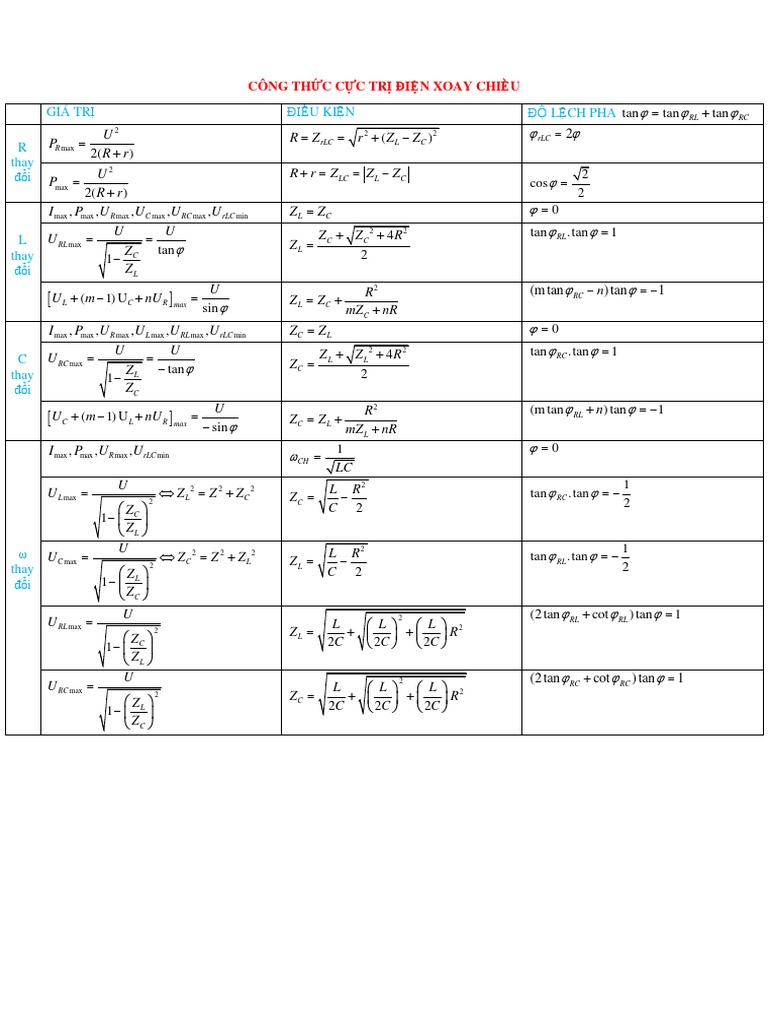 CÔNG THỨC CỰC TRỊ ĐIỆN XOAY CHIỀU
GIÁ TRỊ | ĐIỀU KIÊN | ĐỘ LỆCH PHA tanφ = tanφ_RL + tanφ_RC
R thay đổi
P_Rmax = U²/(2(R + r)) | R = Z_rLC = √(r² + (Z_L − Z_C)²) | φ_rLC = 2φ
P_max = U²/(2(R + r)) | R + r = Z_LC = |Z_L − Z_C| | cosφ = √2/2
L thay đổi
I_max, P_max, U_Rmax, U_Cmax, U_RCmax, U_rLCmin | Z_L = Z_C | φ = 0
U_RLmax = U/√(1 − Z_C/Z_L) = U/tanφ | Z_L = (Z_C + √(Z_C² + 4R²))/2 | tanφ_RL.tanφ = 1
[U_L + (m − 1) U_C + nU_R]_max = U/sinφ | Z_L = Z_C + R²/(mZ_C + nR) | (m tanφ_RC − n) tanφ = −1
C thay đổi
I_max, P_max, U_Rmax, U_Lmax, U_RLmax, U_rLCmin | Z_C = Z_L | φ = 0
U_RCmax = U/√(1 − Z_L/Z_C) = U/(−tanφ) | Z_C = (Z_L + √(Z_L² + 4R²))/2 | tanφ_RC.tanφ = 1
[U_C + (m − 1) U_L + nU_R]_max = U/(−sinφ) | Z_C = Z_L + R²/(mZ_L + nR) | (m tanφ_RL + n) tanφ = −1
ω thay đổi
I_max, P_max, U_Rmax, U_rLCmin | ω_CH = 1/√(LC) | φ = 0
U_Lmax = U/√(1 − (Z_C/Z_L)²) ⇔ Z_L² = Z² + Z_C² | Z_C = √(L/C − R²/2) | tanφ_RC.tanφ = −1/2
U_Cmax = U/√(1 − (Z_L/Z_C)²) ⇔ Z_C² = Z² + Z_L² | Z_L = √(L/C − R²/2) | tanφ_RL.tanφ = −1/2
U_RLmax = U/√(1 − (Z_C/Z_L)²) | Z_L = √(L/2C + √((L/2C)² + (L/2C)R²)) | (2 tanφ_RL + cotφ_RL) tanφ = 1
U_RCmax = U/√(1 − (Z_L/Z_C)²) | Z_C = √(L/2C + √((L/2C)² + (L/2C)R²)) | (2 tanφ_RC + cotφ_RC) tanφ = 1